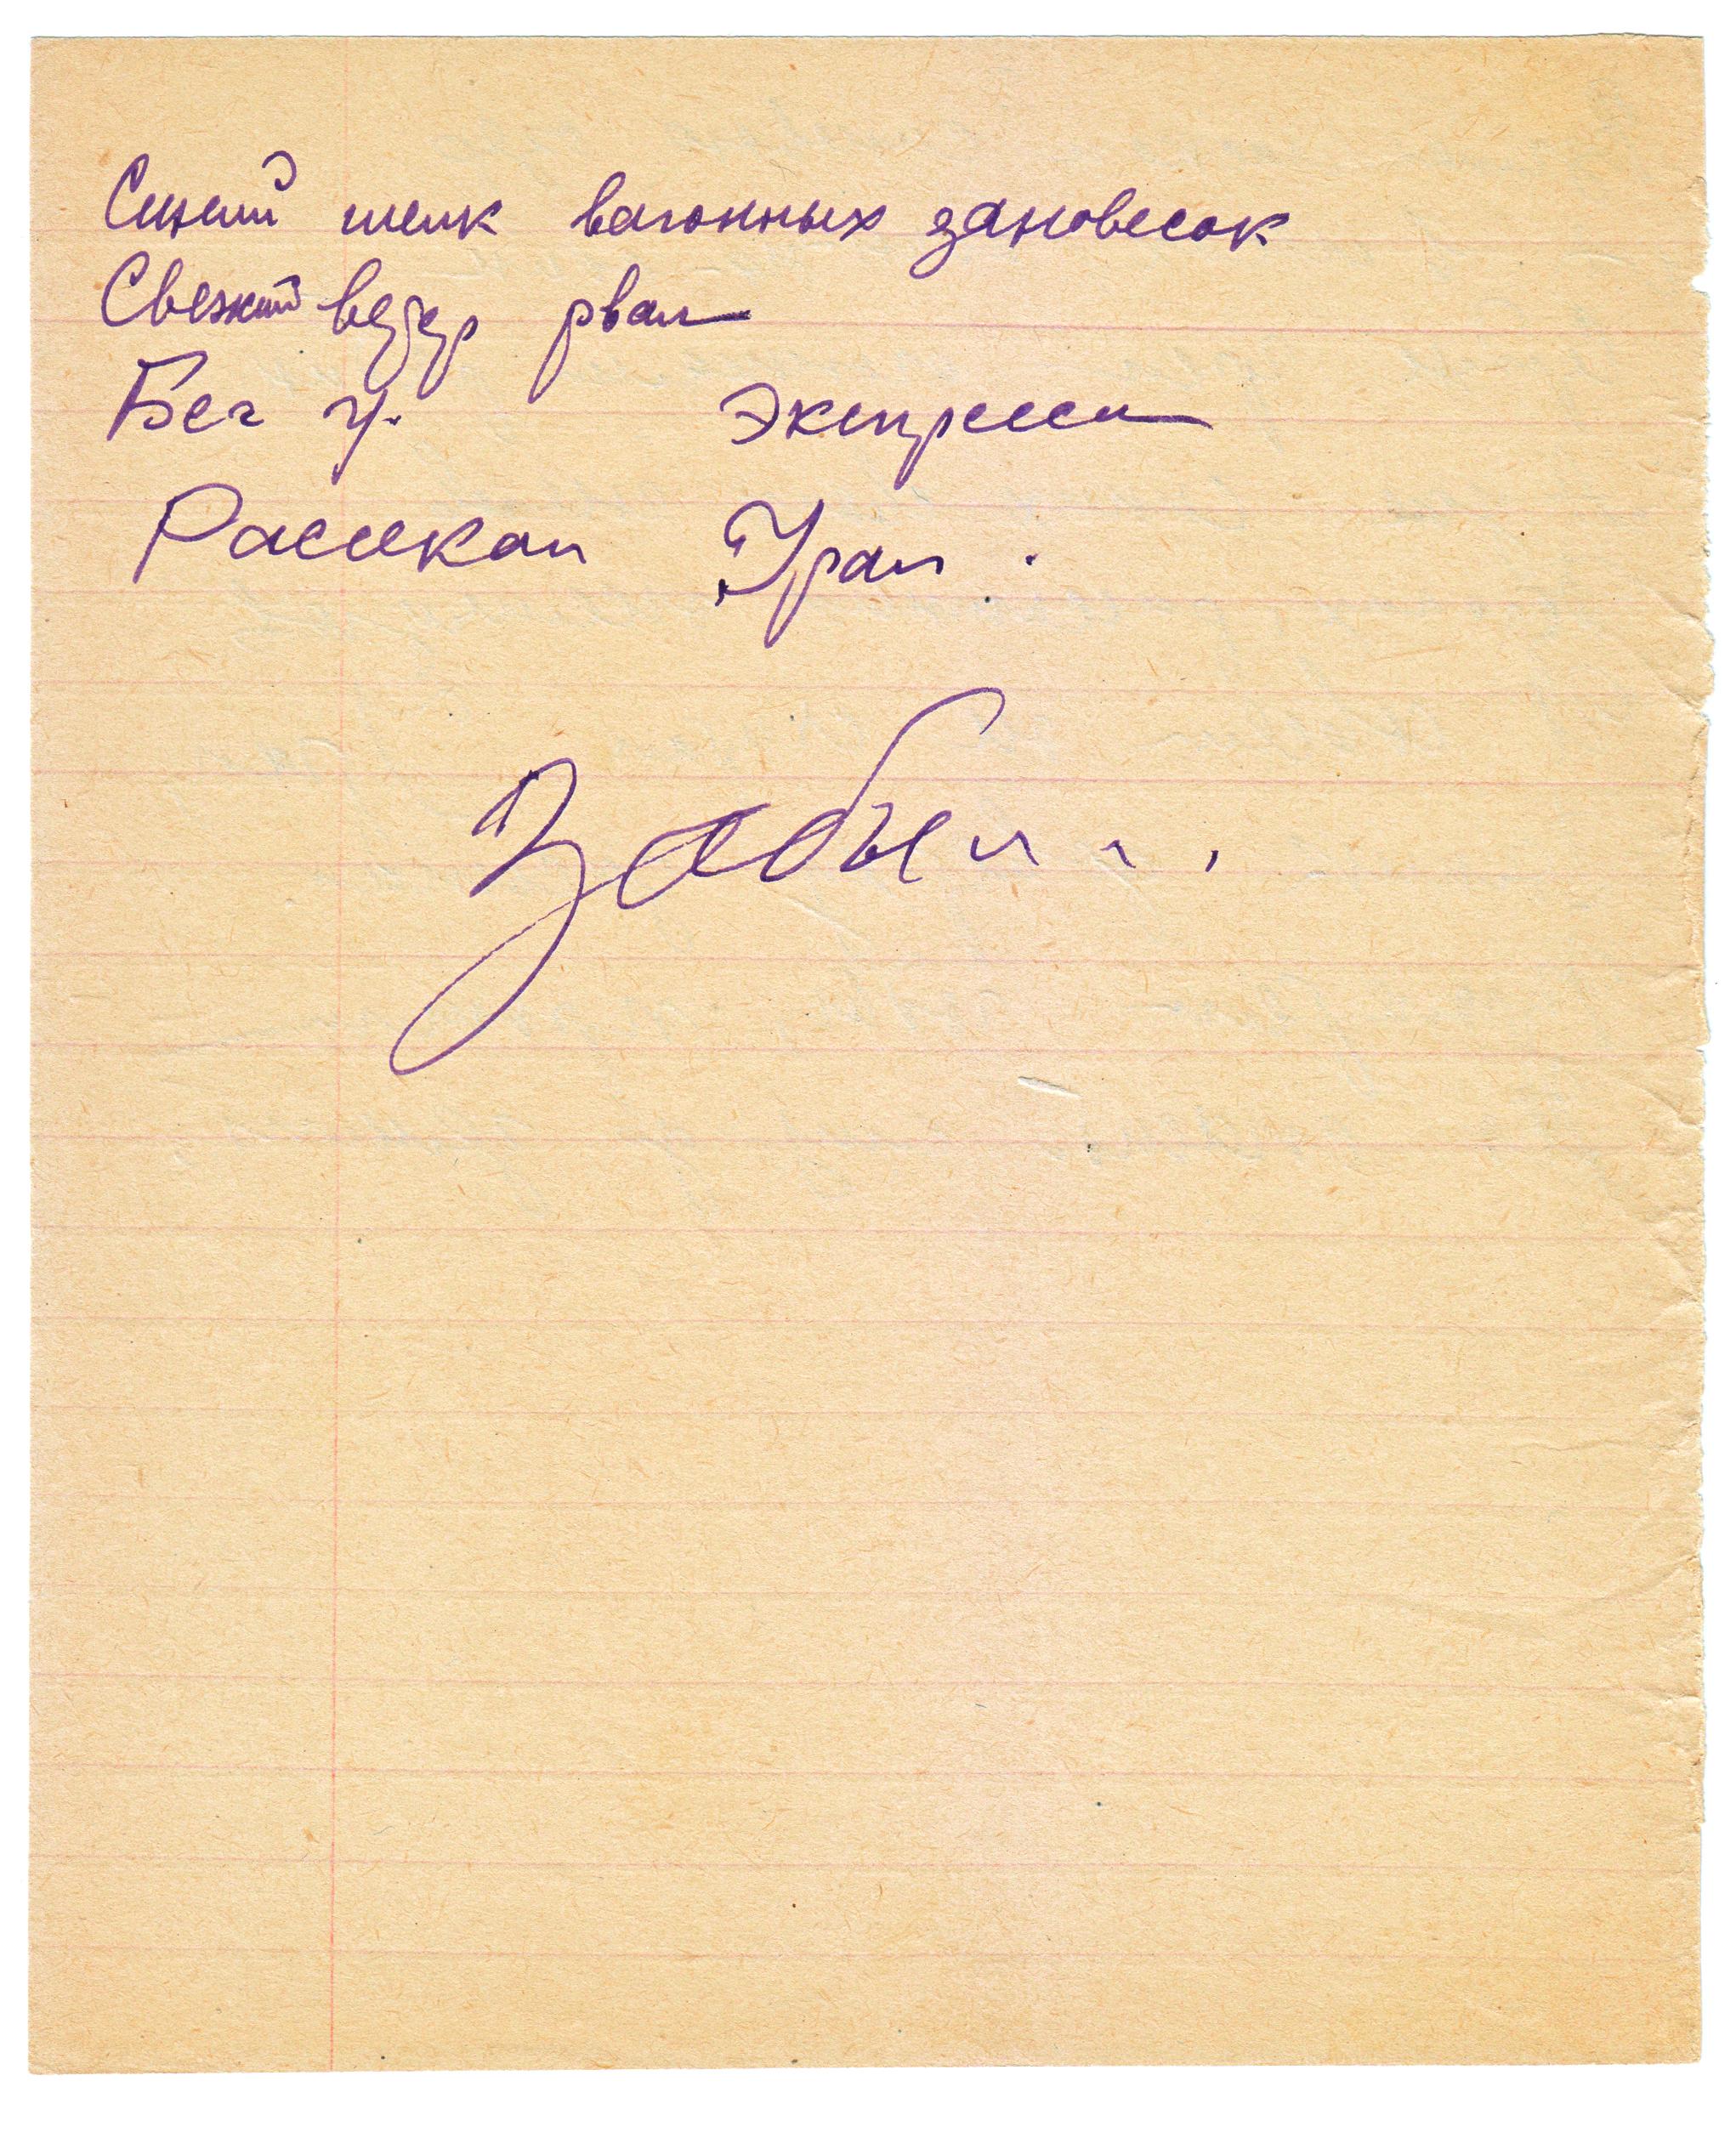 Синий шелк вагонных зановесок
Свежий ветер рвал
Бег Экспресса
Рассекал Урал.
Забыл...